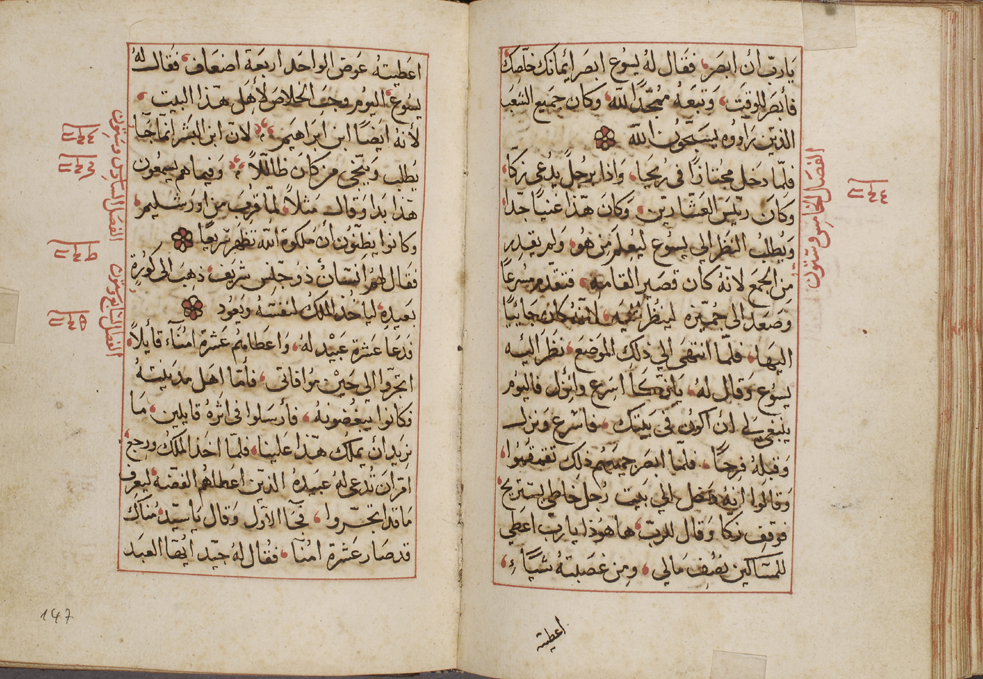 يا رب أن أبصر، فقال له يسوع ابصر أيمانك خلصك
فأبصر للوقت، وتبعه ممجدًا لله وكان جميع الشعب
الذين راووه يسبحون الله
فلما دخل مجتازًا في ريحا، واذا برجل يدعى زكا
وكان رئيس العشارين، وكان هذا غنيا جدا
ويطلب النظر الى يسوع ليعلم من هو، ولم يقدر
من الجمع لانه كان قصير القامه، فتقدم مسرعا
وصعد الى جميزه لينظر لانه كان
اليها، فلما انتهى الى ذلك الموضع، نظر اليه
يسوع وقال له، يا زكا اسرع وانزل فاليوم
ينبغي لي ان اكون في بيتك، فأسرع ونزل
وقبله فرحًا، فلما ابصر جميعهم ذلك تقمقموا
وقالوا انه دخل الى بيت رجل خاطي ليستريح
فوقف زكا وقال للرب، ها هوذا يا رب اعطي
للمساكين نصف مالي، ومن غصبته شيأ،
الفصل الخامس وستون
أعطيته
اعطيته عوض الواحد اربعة اضعاف، فقال له
يسوع، اليوم وجب الخلاص لأهل هذا البيت،
لأنه ايضا ابن ابراهيم، لان ابن البشر انما جا
يطلب وينجي من كان ضاللًا، وفيما هم يسمعون
هذا بدا وقال مثلًا، لما قرب من اورشليم،
وكانوا يظنون ان ملكوة الله تظهر سريعا
فقال لهم، انسان ذو جنس شريف، ذهب الى كورة
بعيده لياخذ الملك لنفسه ويعود
فدعا عشرة عبيد له، واعطاهم عشرة امنآء قايلًا
اتجروا الى حين موافاتي، فأما اهل مدينته
فكانوا يبغضونه، فأرسلوا في اثره قايلين، ما
نريد أن يملك هذا علينا، فلما اخذ الملك ورجع
امر ان تدعى له عبيده الذين اعطاهم الفضه ليعرف
ما قد اتجروا، فجا الاول وقال يا سيد، مناك
قد صار عشرة امنا، فقال له جيد ايها العبد
الفصل السادس وستون
الفصل السابع وستون
147